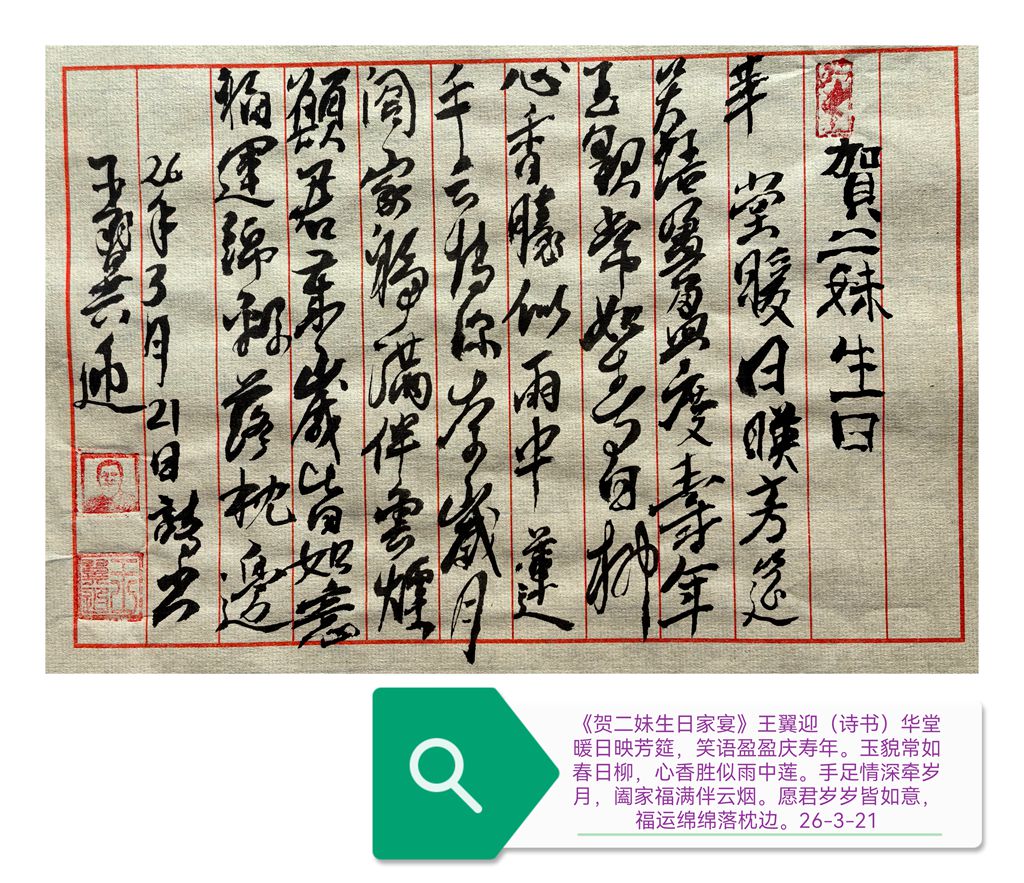 賀二妹生日
華堂暖日暎芳筵
笑語盈盈慶寿年
玉貌常如春日柳
心香勝似雨中蓮
手足情深牵歲月
阖家福滿伴雲煙
願君歲歲皆如意
福運綿綿落枕邊
26年3月21日詩书
王翼迎
《贺二妹生日家宴》王翼迎（诗书）华堂
暖日映芳筵，笑语盈盈庆寿年。玉貌常如
春日柳，心香胜似雨中莲。手足情深牵岁
月，阖家福满伴云烟。愿君岁岁皆如意，
福运绵绵落枕边。26-3-21